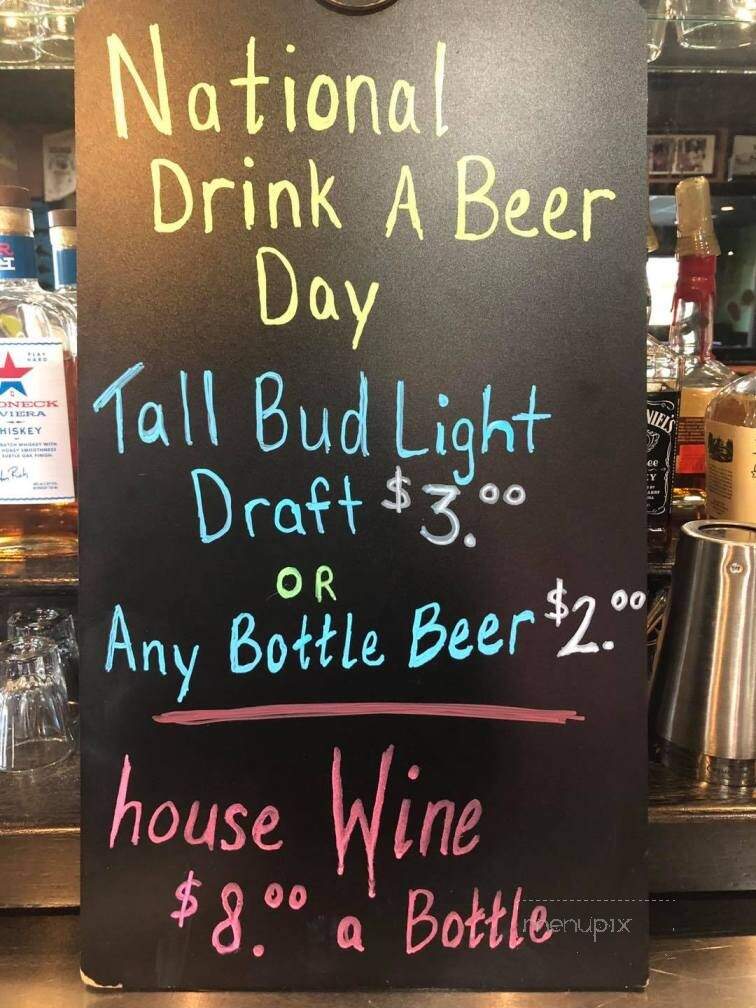 National
Drink A Beer
Day
Tall Bud Light
Draft $3.00
OR
Any Bottle Beer $2.00
house Wine
$8.00 a Bottle
menupix
PLAY
HARD
VIERA
HISKEY